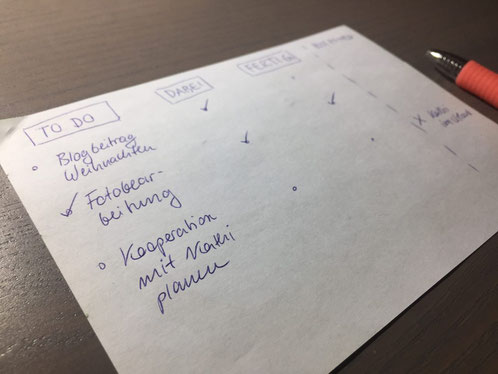 TO DO
DABEI
FERTIG
Blogbeitrag
Weihnachten
Fotobear-
beitung
Kooperation
mit Kathi
planen